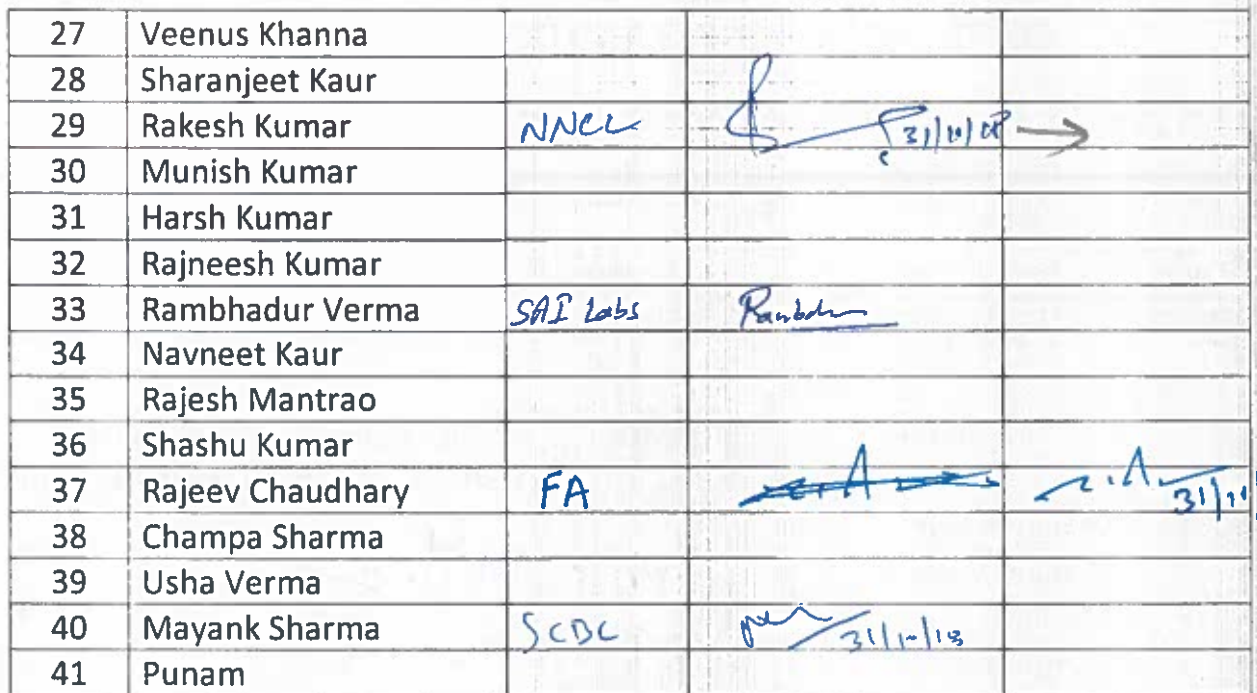 27 Veenus Khanna
28 Sharanjeet Kaur
29 Rakesh Kumar NNCL 31/10/08
30 Munish Kumar
31 Harsh Kumar
32 Rajneesh Kumar
33 Rambhadur Verma SAI Labs
34 Navneet Kaur
35 Rajesh Mantrao
36 Shashu Kumar
37 Rajeev Chaudhary FA
38 Champa Sharma
39 Usha Verma
40 Mayank Sharma SCBC
41 Punam